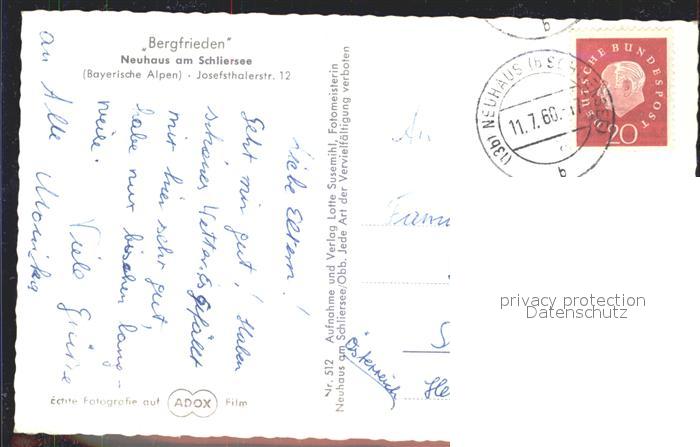 „Bergfrieden"
Neuhaus am Schliersee
(Bayerische Alpen) · Josefsthalerstr. 12
Liebe Eltern!
Geht mir gut! Haben
schönes Wetter, es gefällt
mir hier sehr gut,
habe nur bischen lang-
weile.
Viele Grüsse
an Alle Monika
Echte Fotografie auf ADOX Film
Nr. 512 Aufnahme und Verlag Lotte Susemihl, Fotomeisterin
Neuhaus am Schliersee/Obb. Jede Art der Vervielfältigung verboten
(13b) NEUHAUS (b SCHLIERSEE)
11.7.60
b
b
DEUTSCHE BUNDESPOST
20
An
Fami
Österreich
privacy protection
Datenschutz